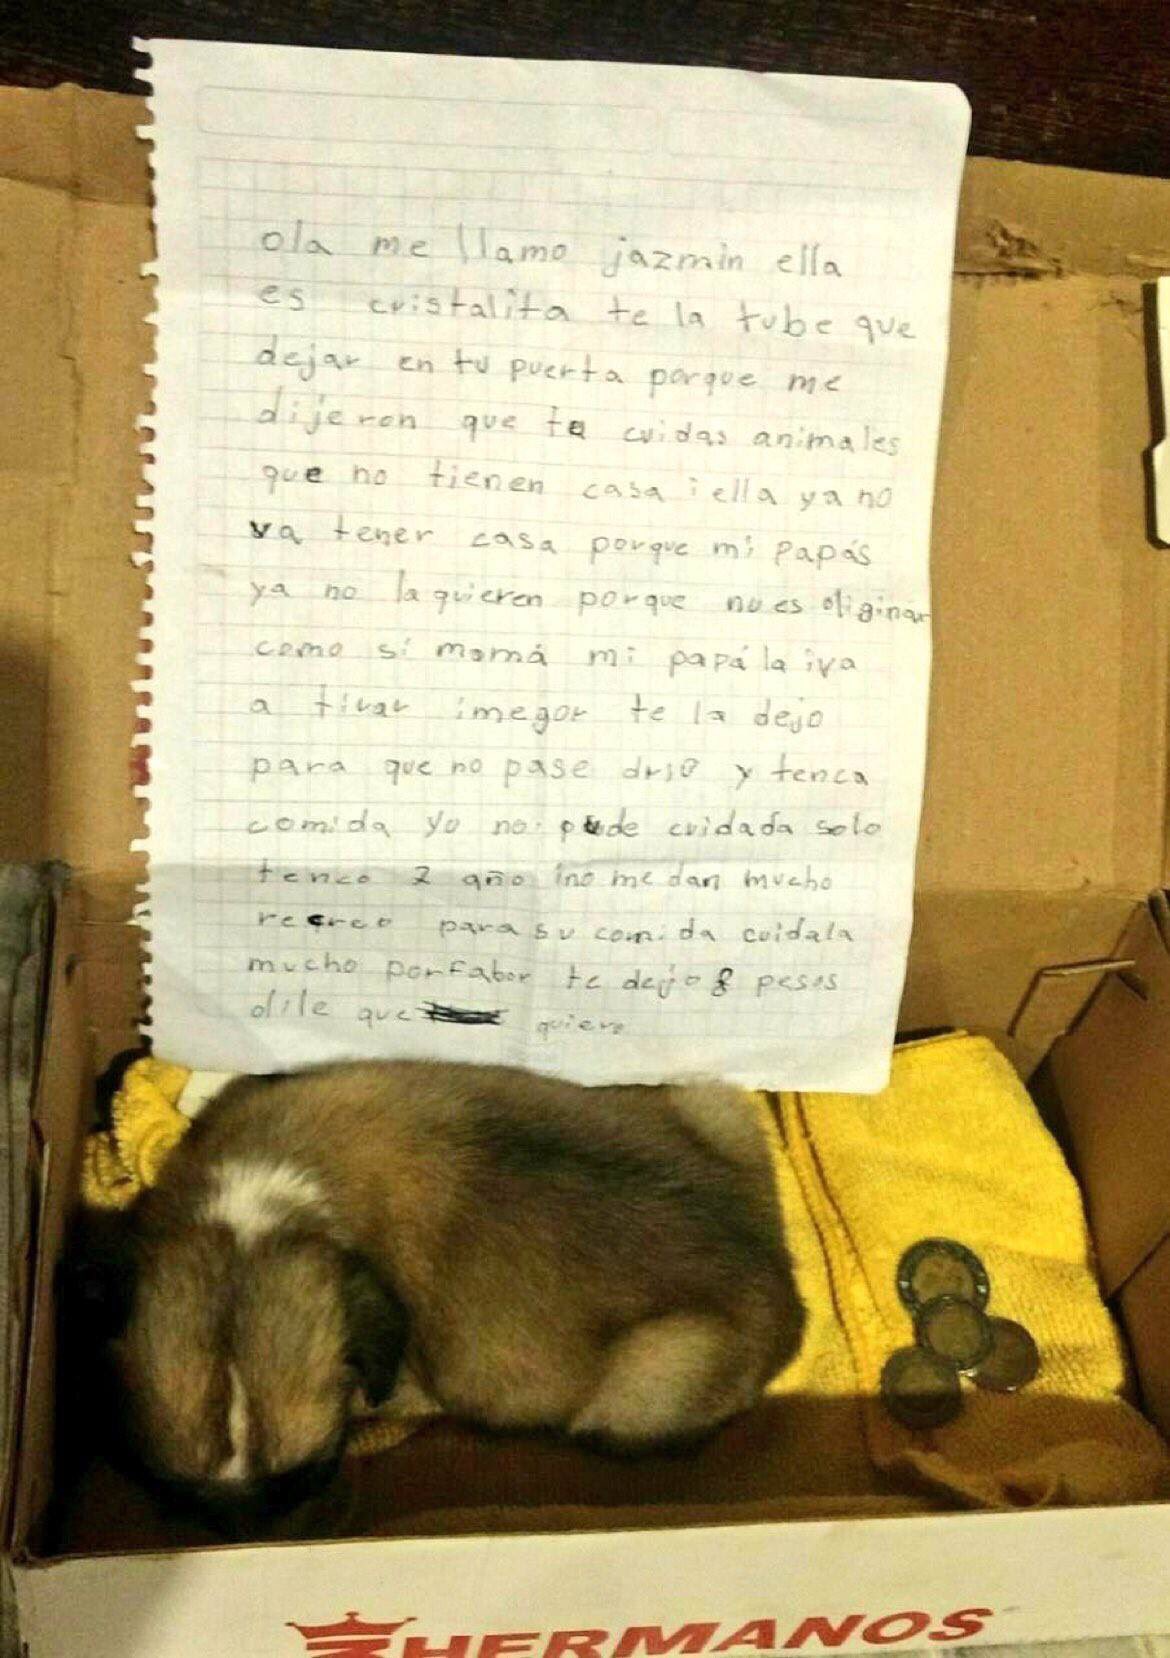 ola me llamo jazmin ella
es cristalita te la tube que
dejar en tu puerta porque me
dijeron que te cuidas animales
que no tienen casa i ella ya no
va tener casa porque mi papás
ya no la quieren porque no es oliginar
como si mamá mi papá la iva
a tirar imegor te la dejo
para que no pase drio y tenca
comida yo no pude cuidada solo
tenco 7 año ino me dan mucho
recreo para su comida cuidala
mucho porfabor te dejo 8 pesos
dile que quiero
3HERMANOS